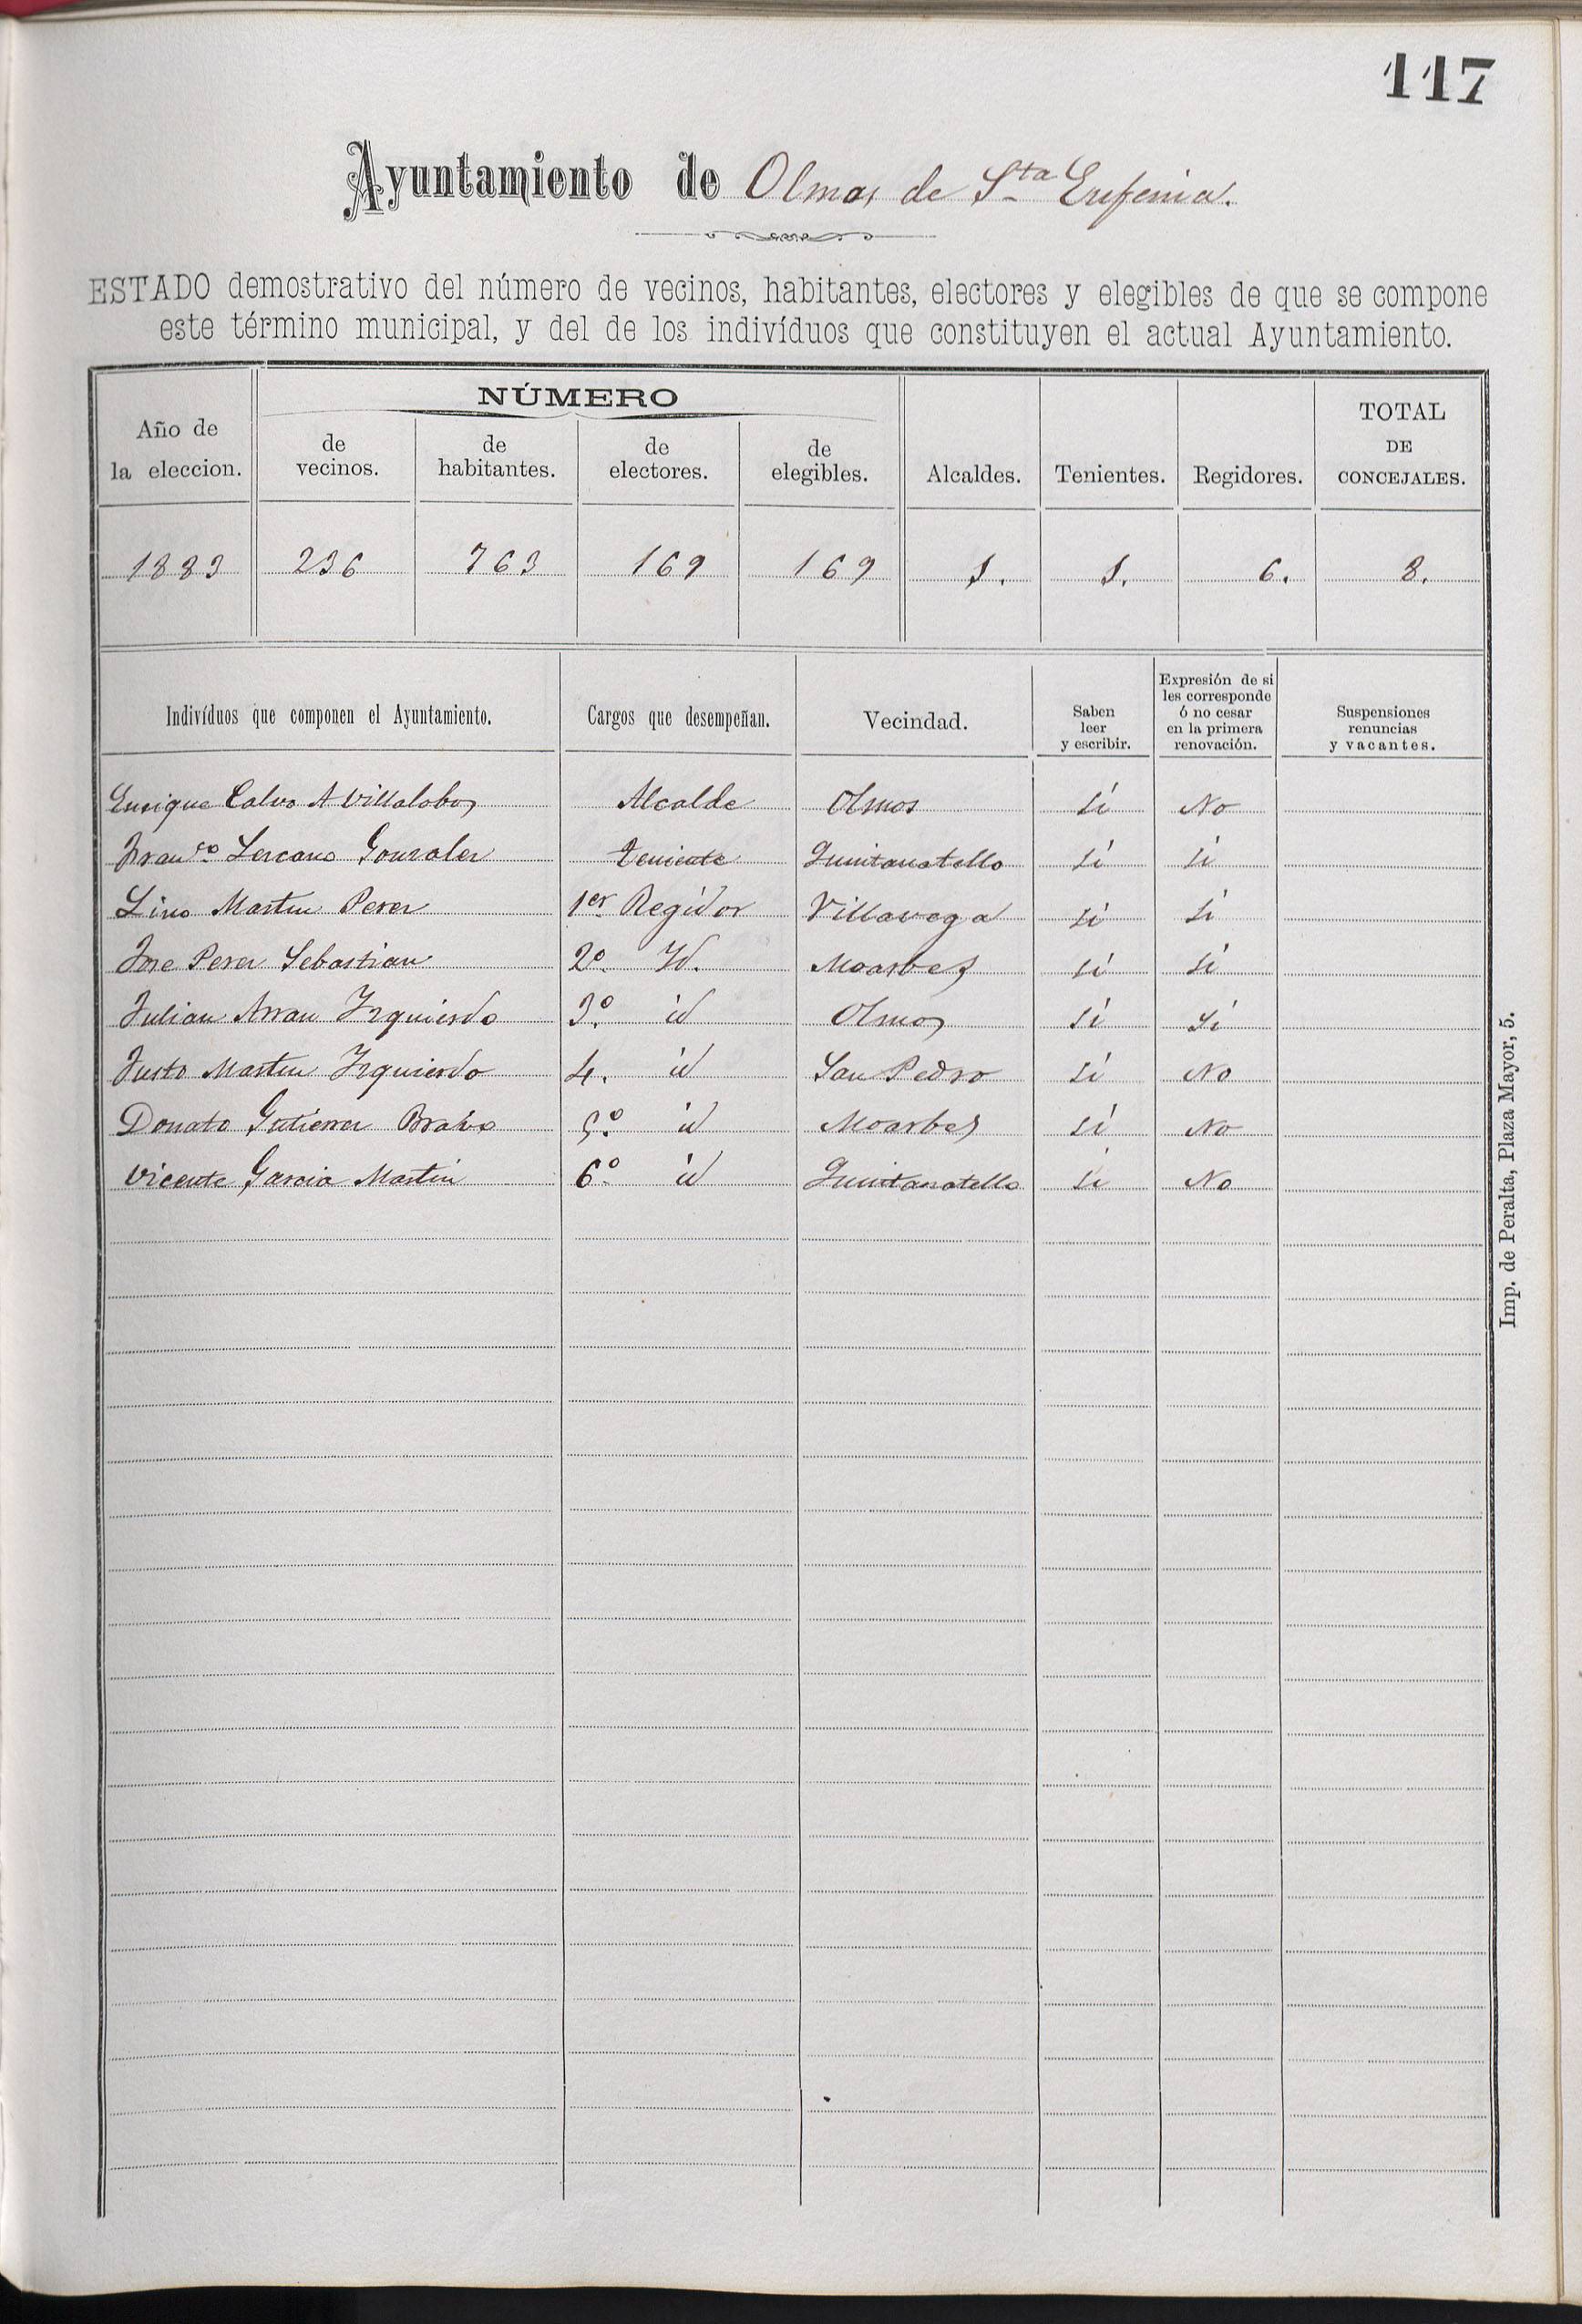 117
Ayuntamiento de Olmos de Sta Eufemia.
ESTADO demostrativo del número de vecinos, habitantes, electores y elegibles de que se compone
este término municipal, y del de los indivíduos que constituyen el actual Ayuntamiento.
Año de la eleccion. NÚMERO de vecinos. de habitantes. de electores. de elegibles. Alcaldes. Tenientes. Regidores. TOTAL DE CONCEJALES.
1883 236 763 169 169 1. 1. 6. 8.
Indivíduos que componen el Ayuntamiento. Cargos que desempeñan. Vecindad. Saben leer y escribir. Expresión de si les corresponde ó no cesar en la primera renovación. Suspensiones renuncias y vacantes.
Enrique Calvo A Villalobos Alcalde Olmos si No
Franco Lercano Gonzalez teniente Quintanatello si si
Lino Martin Perez 1er Regidor Villavega si si
Jose Perez Sebastian 2o Id. Moarbes si si
Julian Arran Izquierdo 3o id Olmos si si
Justo Martin Izquierdo 4. id San Pedro si No
Donato Gutierrez Brabo 5o id Moarbes si No
Vicente Garcia Martin 6o id Quintanatello si No
Imp. de Peralta, Plaza Mayor, 5.